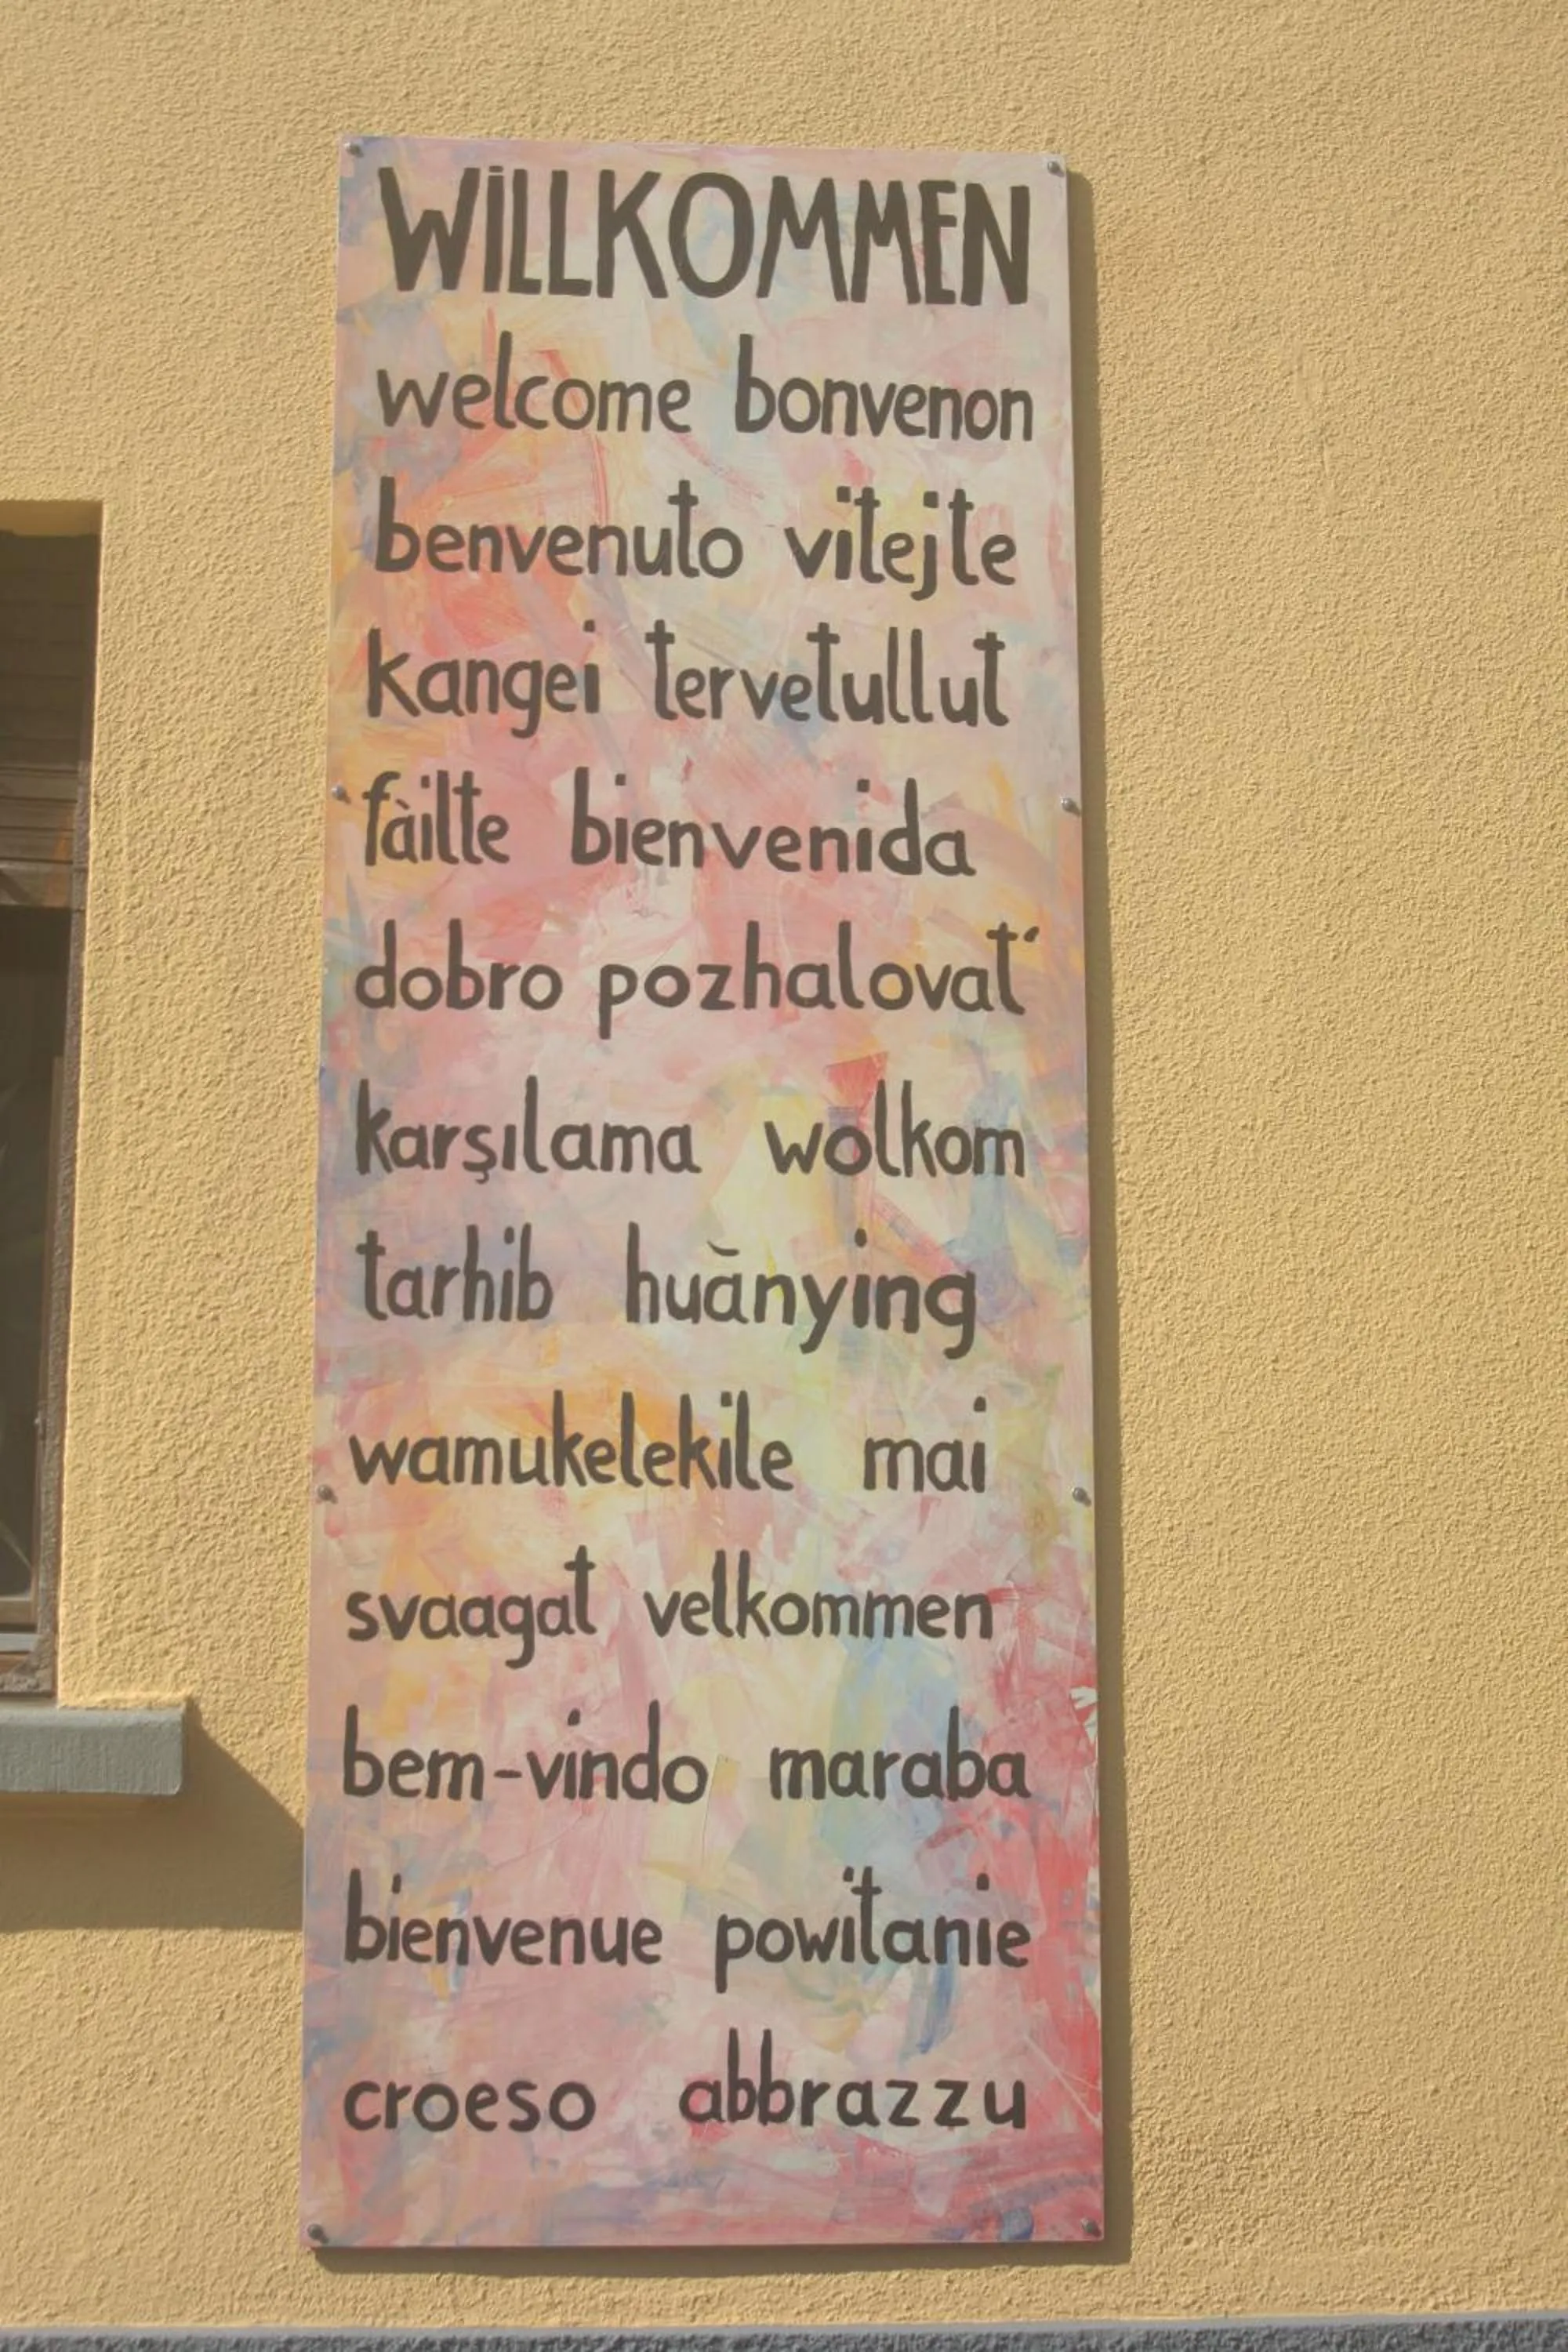 WiLLKOMMEN
welcome bonvenon
benvenuto vitejte
kangei tervetullut
fàilte bienvenida
dobro pozhalovat'
karşılama wolkom
tarhib huānying
wamukelekile mai
svaagat velkommen
bem-vindo maraba
bienvenue powitanie
croeso abbrazzu